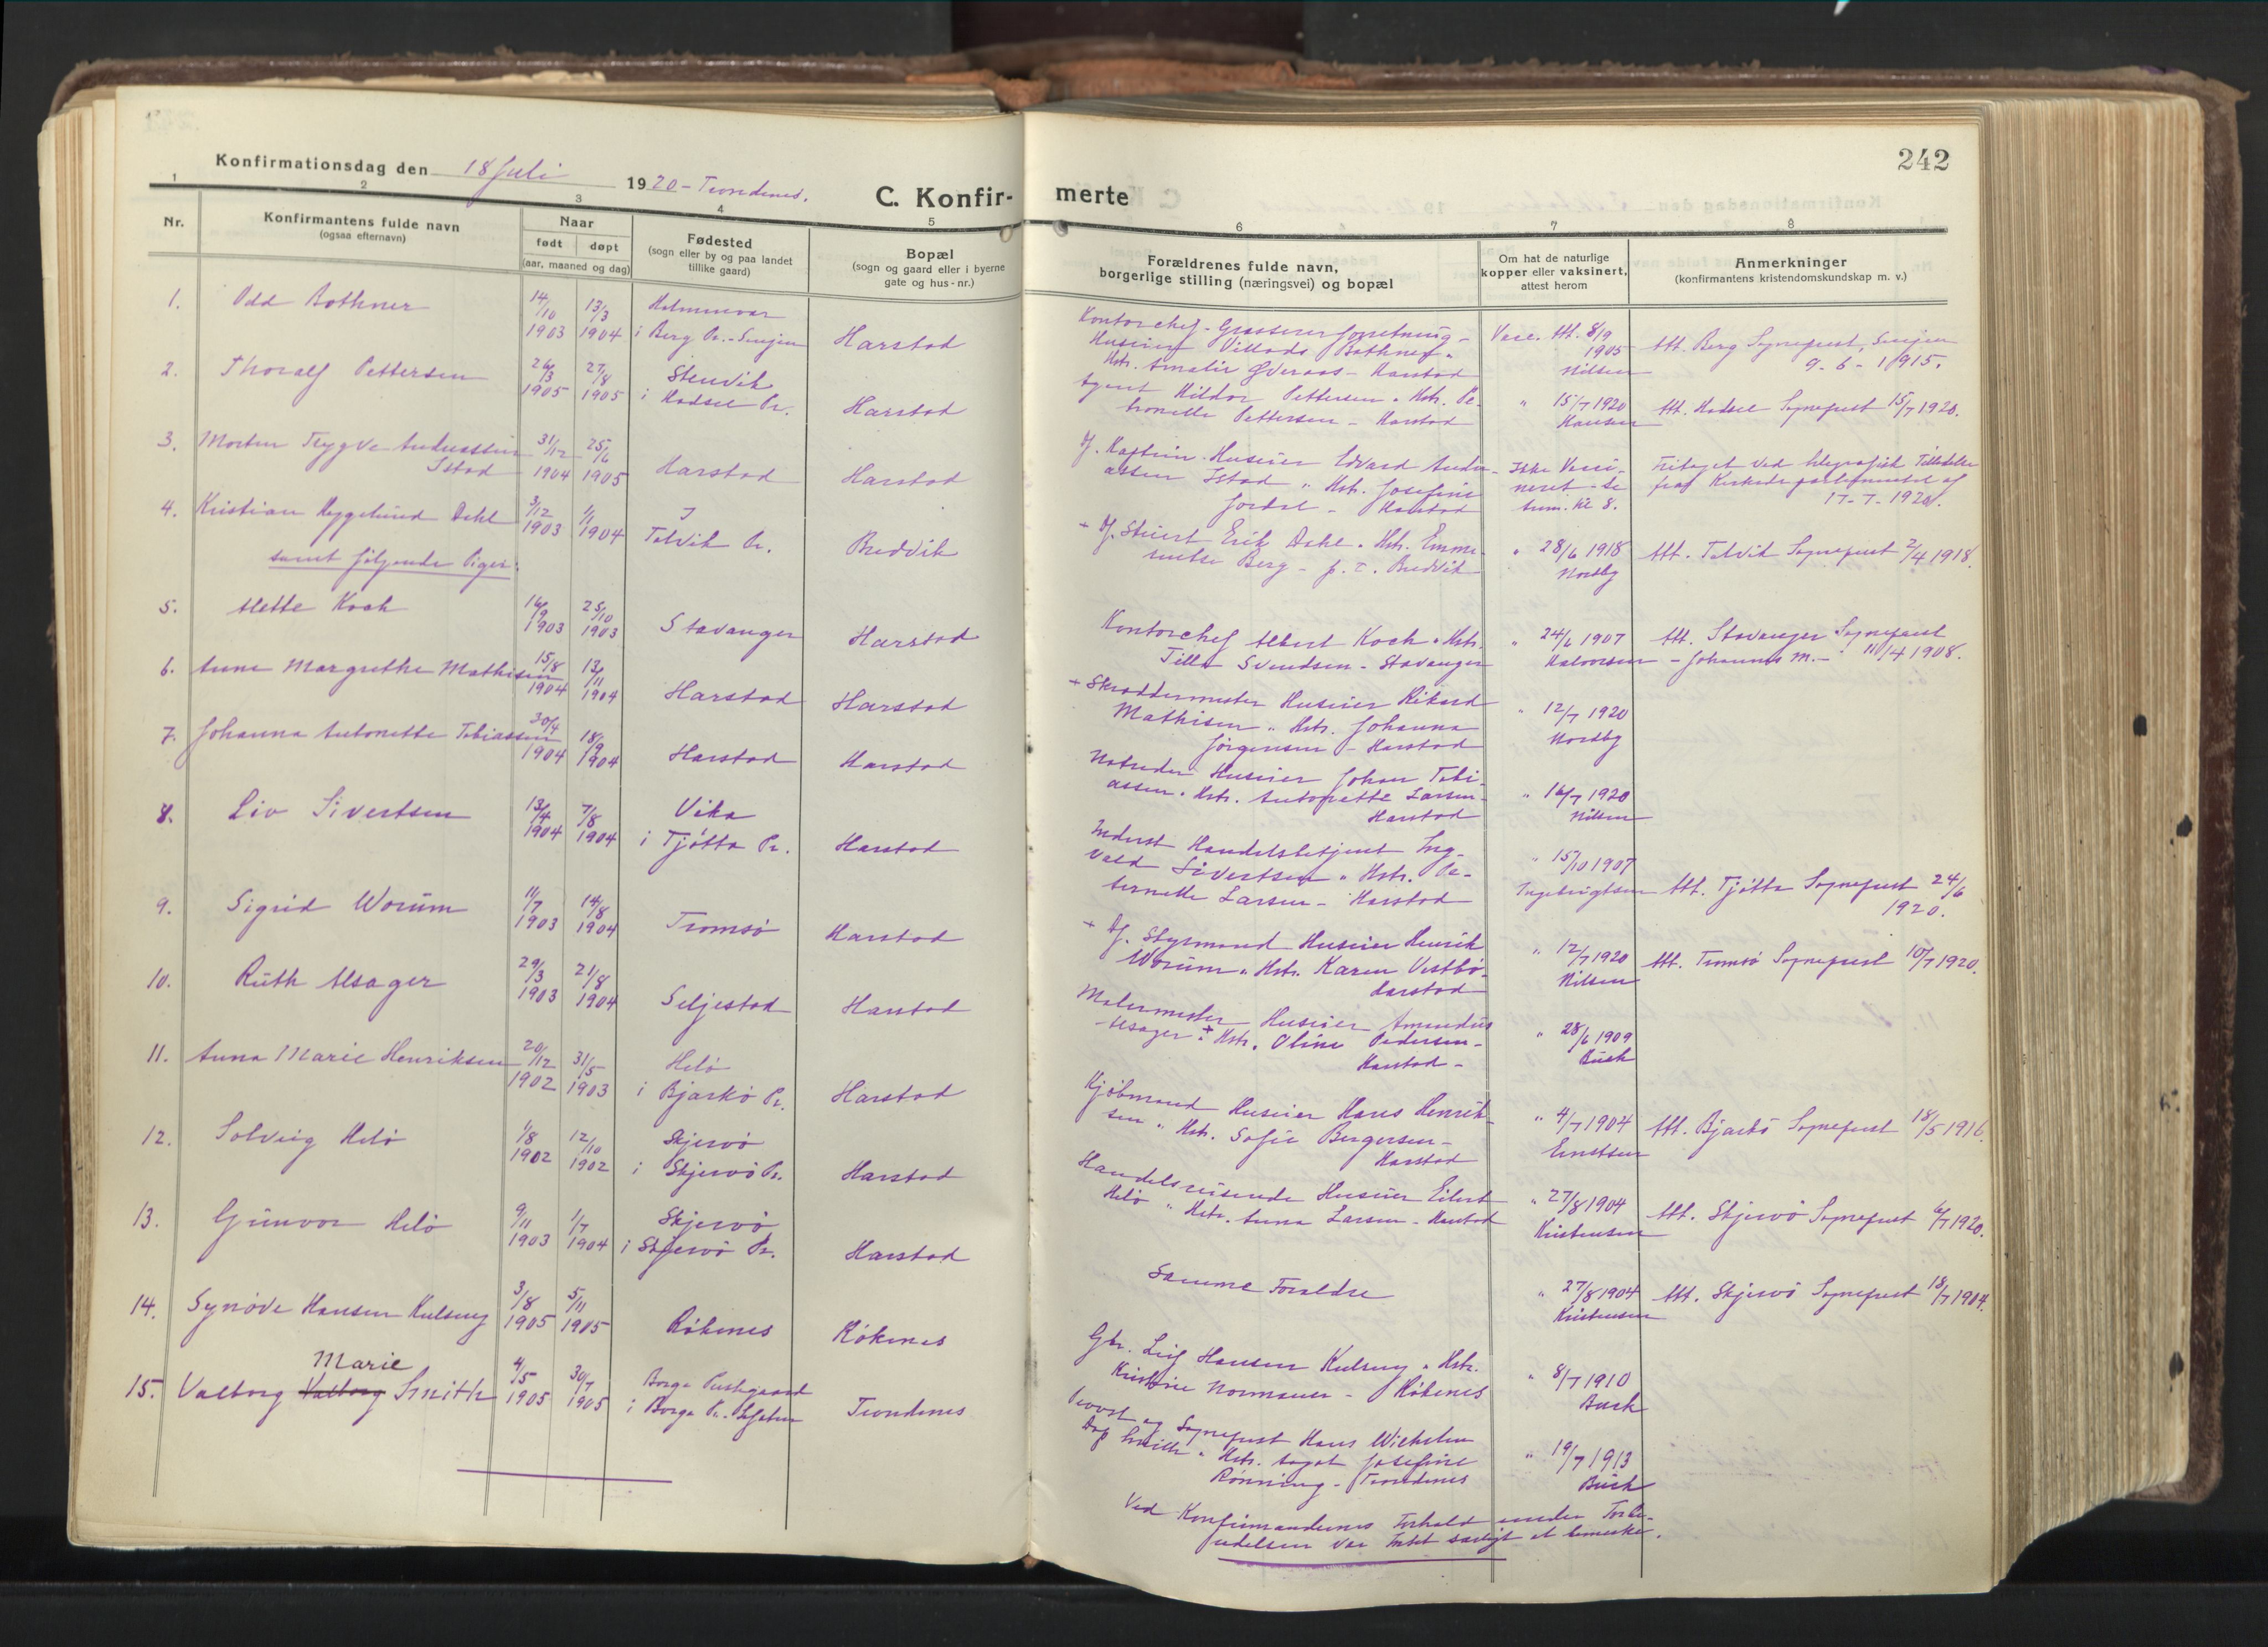 242
Konfirmationsdag den 18 Juli 1920 - Trondenes.
C. Konfirmerte
1 2 3 4 5 6 7 8
Nr.
Konfirmantens fulde navn
(ogsaa efternavn)
Naar
født døpt
(aar, maaned og dag)
Fødested
(sogn eller by og paa landet
tillike gaard)
Bopæl
(sogn og gaard eller i byerne
gate og hus-nr.)
Forældrenes fulde navn,
borgerlige stilling (næringsvei) og bopæl
Om hat de naturlige
kopper eller vaksinert,
attest herom
Anmerkninger
(konfirmantens kristendomskundskap m. v.)
1. Odd Bothner 14/10 1903 13/3 1904
i Berg Pr. - Senjen
Harstad
Huseier Villads Bothner "
Hstr. Amalie Øveraas - Harstad
Vacc. Att. 8/9
1905
Nilsen
Att. Berg Sognepræst, Senjen
9 - 6 - 1915.
2. Thoralf Pettersen 26/3 1905 27/8 1905
Stenvik
i Hadsel Pr.
Harstad
Agent Hildor Pettersen " Hstr. Pe-
tronelle Pettersen - Harstad
" 15/7 1920
Hansen
Att. Hadsel Sognepræst 15/7 1920.
3. Morten Trygve Andreassen
Istad
31/12 1904 25/6 1905
Harstad
Harstad
f. Kaptein Huseier Edvard Andre-
assen Istad " Hstr. Josefine
Jordal - Harstad
Ikke Vacci-
neret - Se
Anm. Kl 8.
Fritaget ved telegrafisk Tilladelse
fra Kirkedepartementet af
17 - 7 - 1920.
4. Kristian Hygelund Dahl 3/12 1903 1/1 1904
I
Talvik Pr.
Bredvik
+ f. Stuert Erik Dahl " Hstr. Emme-
rentse Berg - p. t. Bredvik
" 28/6 1918
Nordby
Att. Talvik Sognepræst 2/4 1918.
samt følgende Piger:
5. Mette Koch 16/9 1903 25/10 1903
Stavanger
Harstad
Kontorchef Albert Koch " Hstr.
Tilla Svendsen - Stavanger
" 24/6 1907
Halvorsen
Att. Stavanger Sognepræst
- Johannes M. - 11/4 1908.
6. Anna Margrethe Mathisen 15/8 1904 13/11 1904
Harstad
Harstad
+ Skræddermester Huseier Rikard
Mathisen " Hstr. Johanna
Jørgensen - Harstad
" 12/7 1920
Nordby
7. Johanna Antonette Tobiassen 30/4 1904 18/9 1904
Harstad
Harstad
Huseier Johan Tobi-
assen " Hstr. Antonette Larsen -
Harstad
" 16/7 1920
Nilsen
8. Liv Sivertsen 13/4 1904 7/8 1904
Vika
i Tjøtta Pr.
Harstad
Handelsbetjent Ing-
vald Sivertsen " Hstr. Pe-
ternelle Larsen - Harstad
" 15/10 1907
Ingebrigtsen
Att. Tjøtta Sognepræst 24/6
1920.
9. Sigrid Worum 11/7 1903 14/8 1904
Tromsø
Harstad
+ f. Styrmand Huseier Henrik
Worum " Hstr. Karen Vestbø -
Harstad
" 12/7 1920
Nilsen
Att. Tromsø Sognepræst 10/7 1920.
10. Ruth Alsager 29/3 1903 21/8 1904
Seljestad
Harstad
Malermester Huseier Amandus
Alsager " + Hstr. Oline Pedersen -
Harstad -
" 28/6 1909
Buch
11. Anna Marie Henriksen 20/12 1902 31/5 1903
Helø
i Bjarkø Pr.
Harstad
Kjøbmand Huseier Hans Henrik-
sen " Hstr. Sofie Bergersen -
Harstad
" 4/7 1904
Ernstsen
Att. Bjarkø Sognepræst 18/5 1916.
12. Solveig Helø 1/8 1902 12/10 1902
Skjervø
i Skjervø Pr.
Harstad
Handelsreisende Huseier Eilert
Helø " Hstr. Anna Larsen - Harstad
" 27/8 1904
Kristensen
Att. Skjervø Sognepræst 6/7 1920.
13. Gunvor Helø 9/11 1903 1/7 1904
Skjervø
i Skjervø Pr.
Harstad
Samme Forældre
" 27/8 1904
Kristensen
Att. Skjervø Sognepræst 18/7 1904.
14. Synøve Hansen Kulseng 3/8 1905 5/11 1905
Røkenes
Røkenes
Gbr. Leif Hansen Kulseng " Hstr.
Kristine Normann - Røkenes
" 8/7 1910
Buch
15. Valborg Valborg Marie Smith 4/5 1905 30/7 1905
Borge Prestegaard
i Borge Pr. - Lofoten
Trondenes
Provst og Sognepræst Hans Wilhelm
Dop Smith " Hstr. Aagot Josefine
Rønning - Trondenes
" 19/7 1913
Buch
Ved Konfirmandernes Forhold under Forbe-
redelsen var Intet særligt at bemærke.